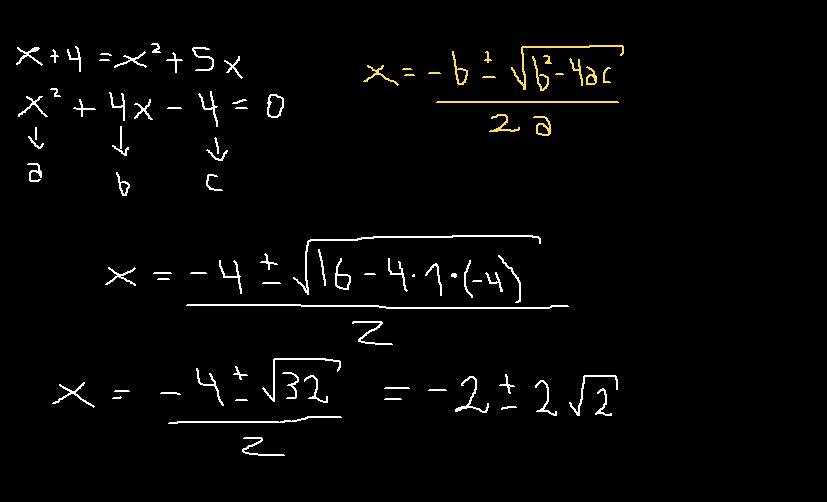 x+4 = x² + 5x
x² + 4x - 4 = 0
↓ ↓ ↓
a b c
x = -b ± √(b² - 4ac)
2a
x = -4 ± √(16 - 4·1·(-4))
2
x = -4 ± √32 = -2 ± 2√2
2